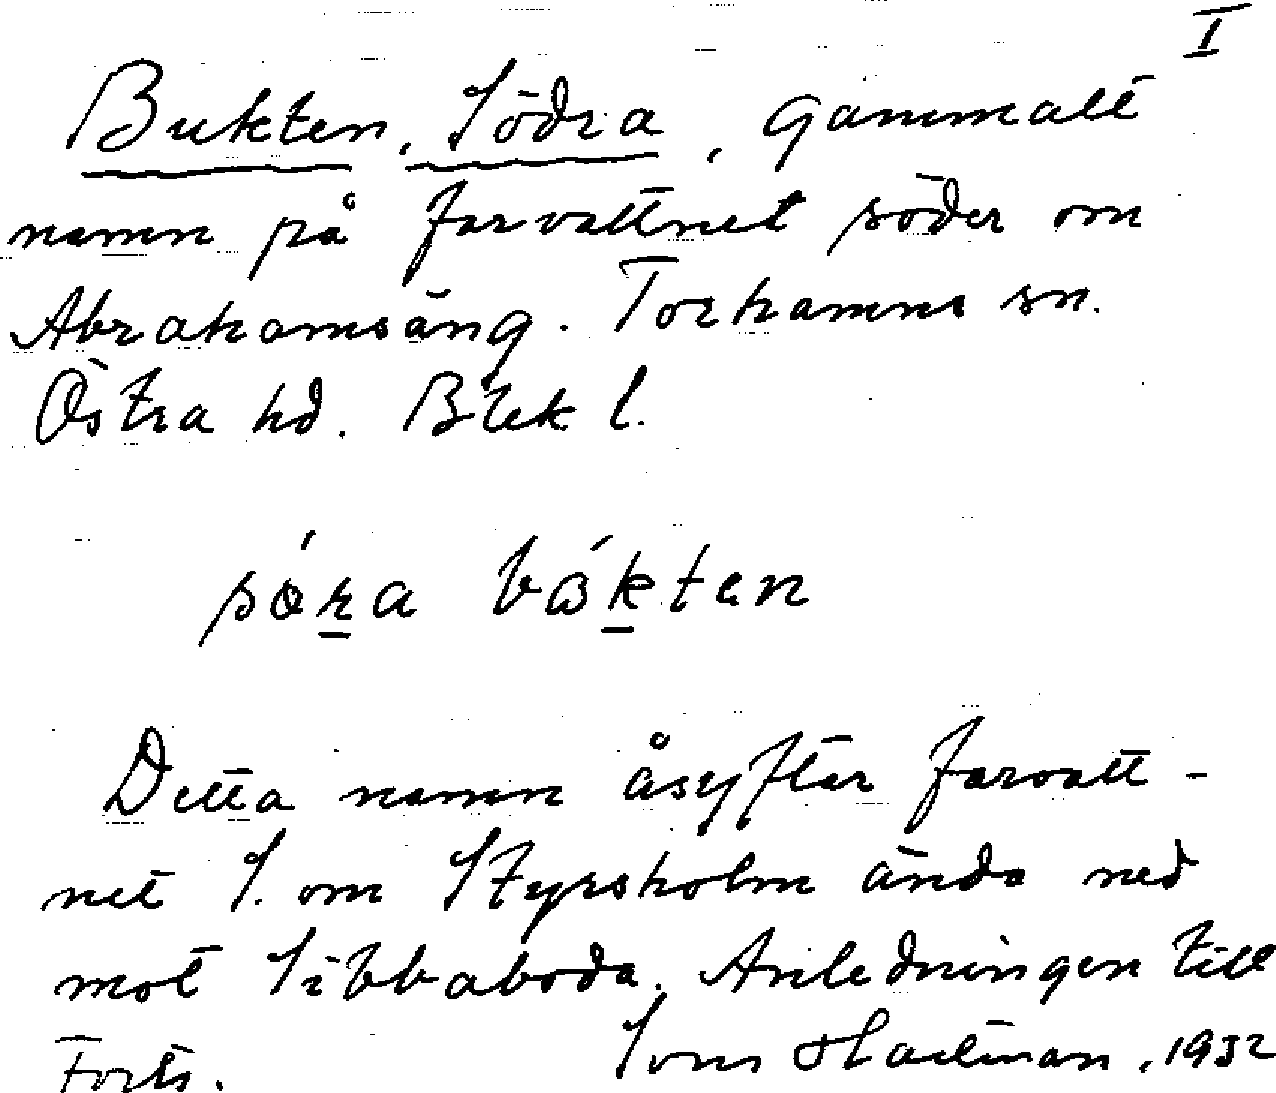 I
Bukten, Södra, gammalt
namn på farvattnet söder om
Abrahamsäng. Torhamns sn.
Östra hd. Blek l.
sǿra bǻkten
Detta namn åsyftar farvatt-
net S. om Styrsholm ända ned
mot Sibbaboda. Anledningen till
Forts. Sven 1932